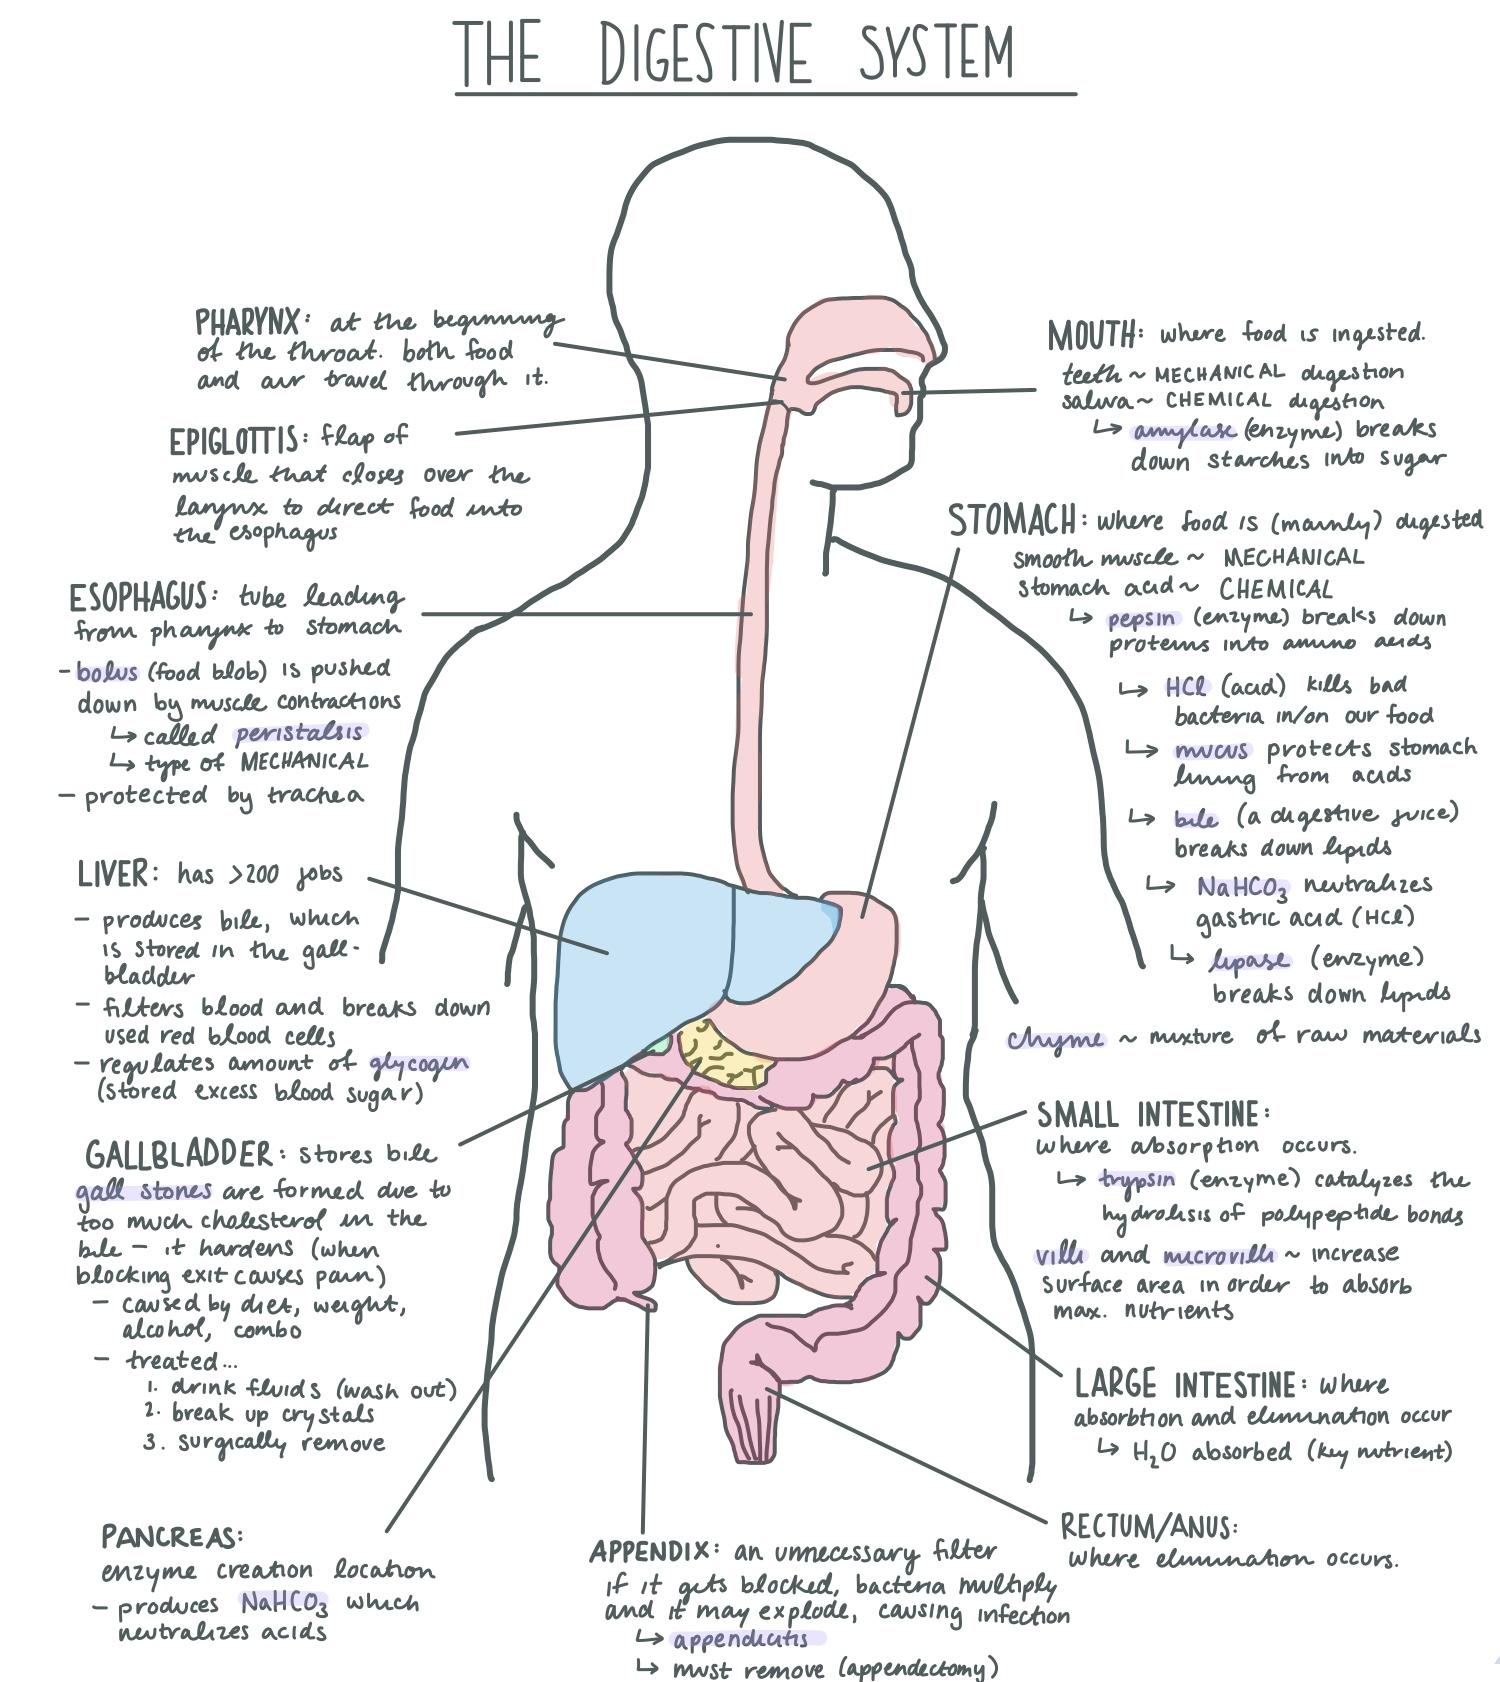 THE DIGESTIVE SYSTEM
PHARYNX: at the beginning
of the throat. both food
and air travel through it.
EPIGLOTTIS: flap of
muscle that closes over the
larynx to direct food into
the esophagus
ESOPHAGUS: tube leading
from pharynx to stomach
- bolus (food blob) is pushed
down by muscle contractions
↳ called peristalsis
↳ type of MECHANICAL
- protected by trachea
LIVER: has >200 jobs
- produces bile, which
is stored in the gall-
bladder
- filters blood and breaks down
used red blood cells
- regulates amount of glycogen
(stored excess blood sugar)
GALLBLADDER: stores bile
gall stones are formed due to
too much cholesterol in the
bile - it hardens (when
blocking exit causes pain)
- caused by diet, weight,
alcohol, combo
- treated...
1. drink fluids (wash out)
2. break up crystals
3. surgically remove
PANCREAS:
enzyme creation location
- produces NaHCO₃ which
neutralizes acids
MOUTH: where food is ingested.
teeth ~ MECHANICAL digestion
saliva ~ CHEMICAL digestion
↳ amylase (enzyme) breaks
down starches into sugar
STOMACH: where food is (mainly) digested
smooth muscle ~ MECHANICAL
stomach acid ~ CHEMICAL
↳ pepsin (enzyme) breaks down
proteins into amino acids
↳ HCl (acid) kills bad
bacteria in/on our food
↳ mucus protects stomach
lining from acids
↳ bile (a digestive juice)
breaks down lipids
↳ NaHCO₃ neutralizes
gastric acid (HCl)
↳ lipase (enzyme)
breaks down lipids
chyme ~ mixture of raw materials
SMALL INTESTINE:
where absorption occurs.
↳ trypsin (enzyme) catalyzes the
hydrolisis of polypeptide bonds
villi and microvilli ~ increase
surface area in order to absorb
max. nutrients
LARGE INTESTINE: where
absorbtion and elimination occur
↳ H₂O absorbed (key nutrient)
RECTUM/ANUS:
where elimination occurs.
APPENDIX: an unnecessary filter
if it gets blocked, bacteria multiply
and it may explode, causing infection
↳ appendicitis
↳ must remove (appendectomy)